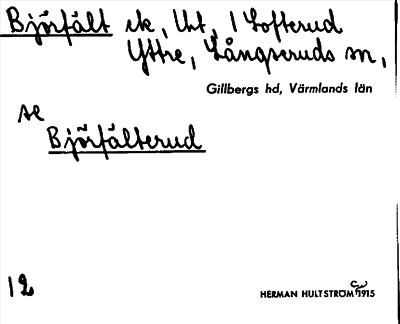 Björfält ek, Utt, 1 Lofterud
Yttre, Långseruds sn,
Gillbergs hd, Värmlands län
se
Björfälterud
12
HERMAN HULTSTRÖM 1915